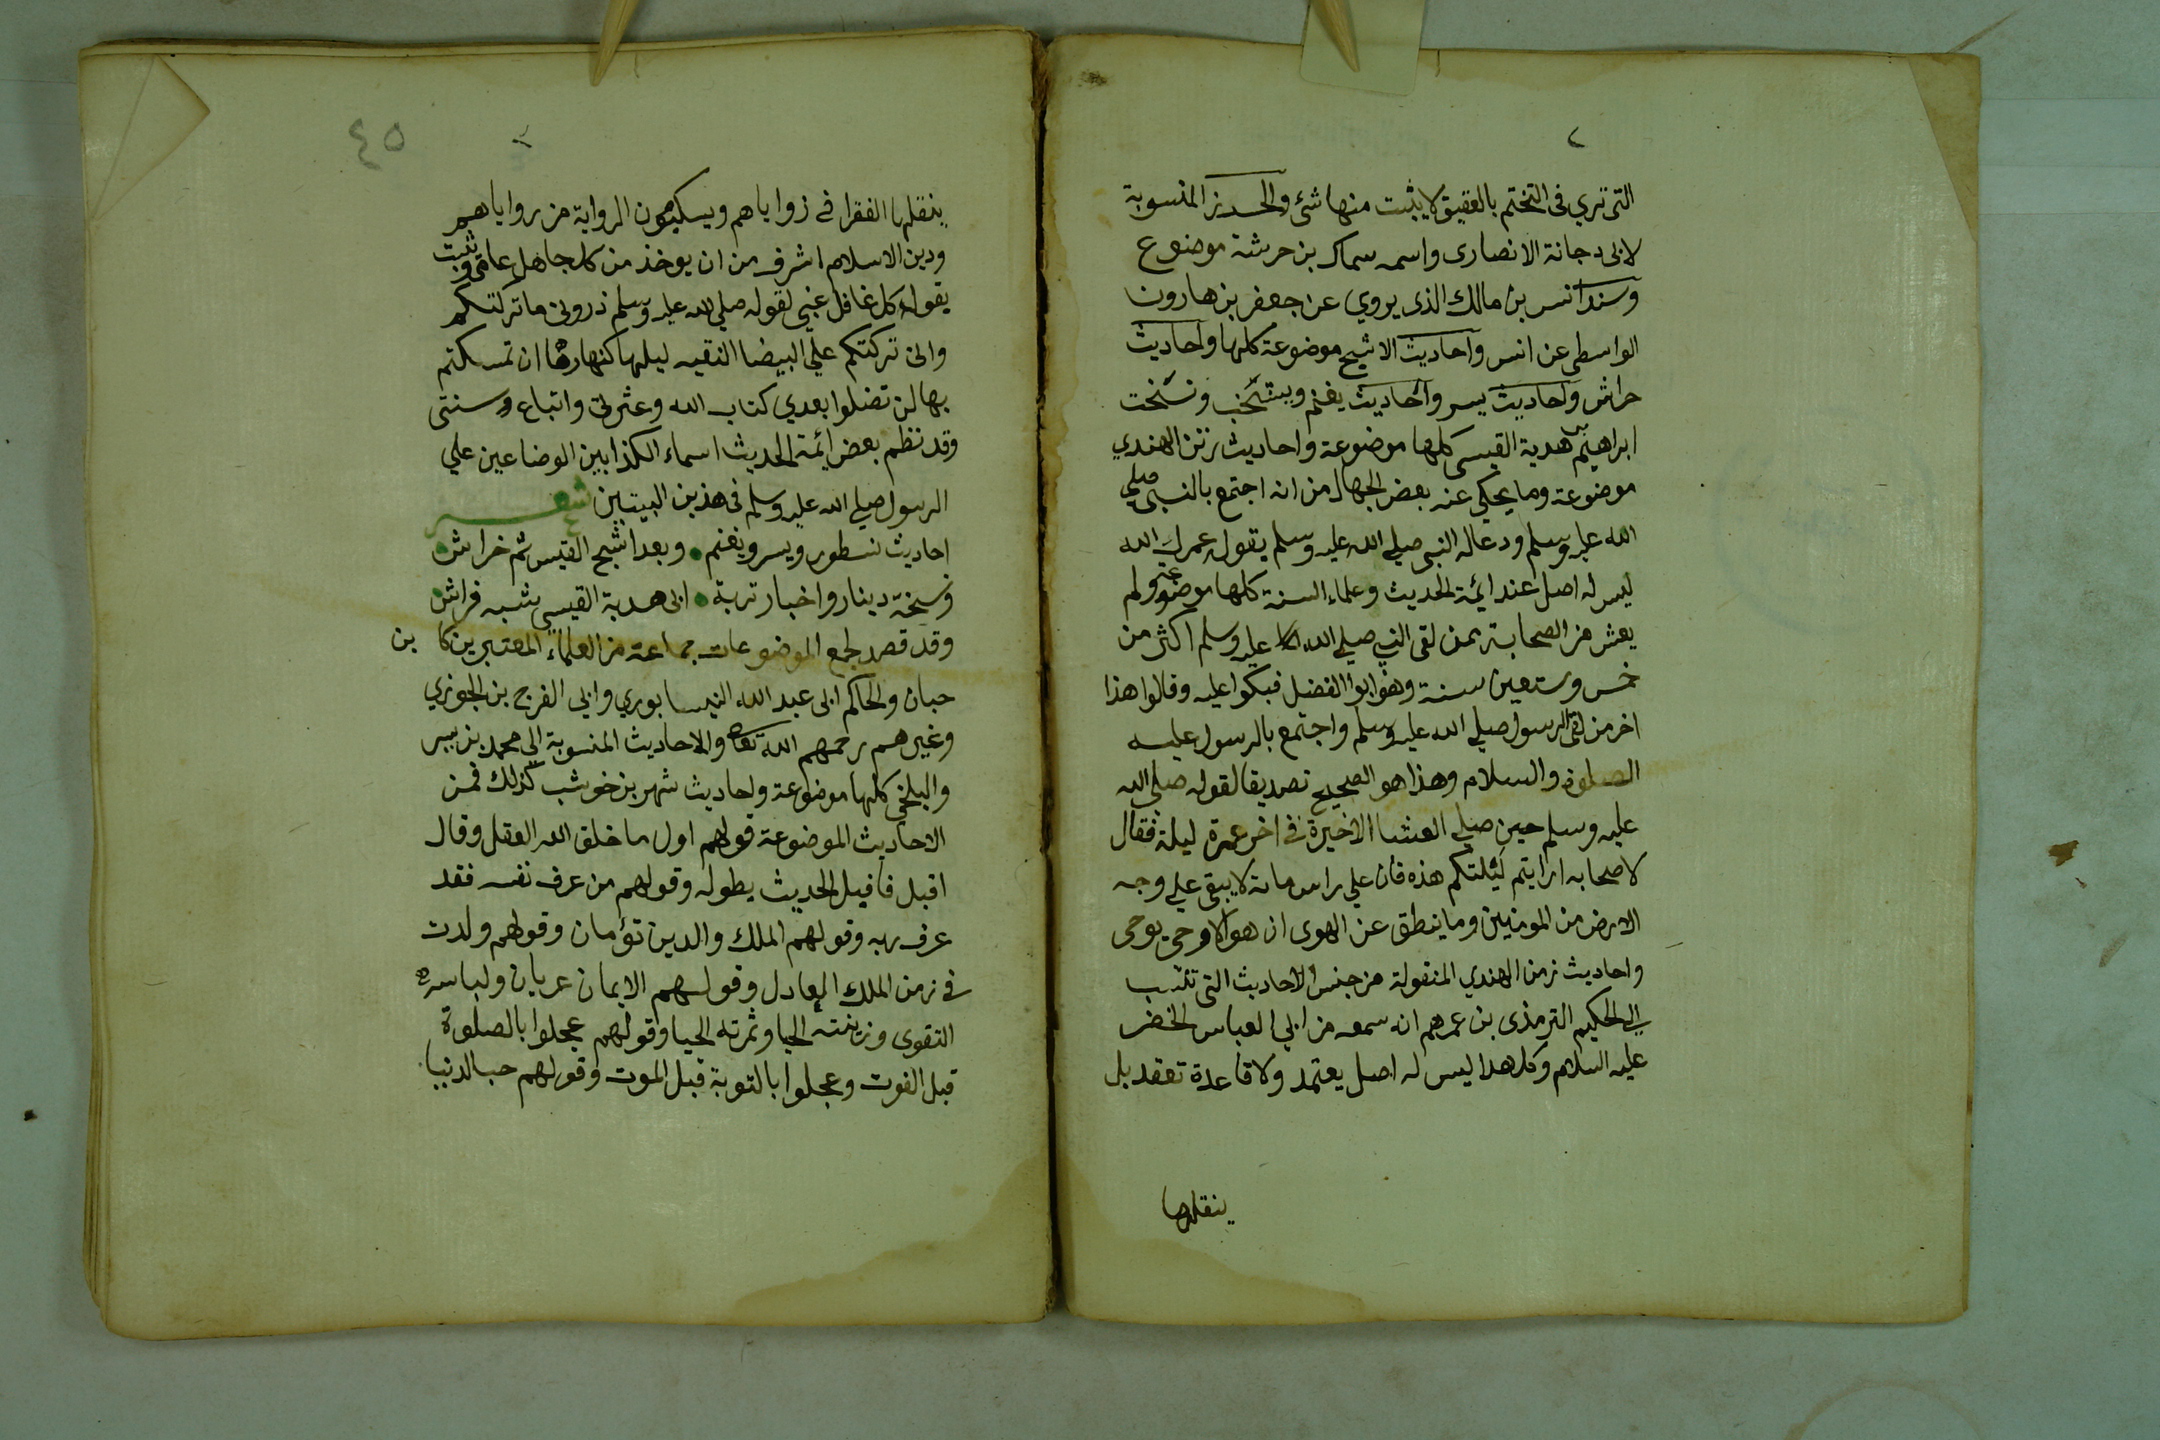 ٢
التى تروي فى التختم بالعقيق لا يثبت منها شئ والحرز المنسوبة
لابى دجانة الانصارى واسمه سماك بن حرشة موضوع
وسند انس بن مالك الذى يروي عن جعفر بن هارون
الواسطى عن انس واحاديث الاشج موضوعة كلها واحاديث
خراش واحاديث يسر واحاديث يغنم ونسخت
ابراهيم بن هدبة القيسى كلها موضوعة واحاديث رتن الهندي
موضوعة وما يحكى عنه بعض الجهال من انه اجتمع بالنبى صلى
الله عليه وسلم ودعا له النبى صلى الله عليه وسلم يقول عمرك الله
ليس له اصل عند ائمة الحديث وعلماء السنة كلها موضوعة ولم
يعش من الصحابة ممن لقى النبى صلى الله عليه وسلم اكثر من
خمس وتسعين سنة وهو ابوا الفضل فبكوا عليه وقالوا هذا
اخر من لقى الرسول صلى الله عليه وسلم واجتمع بالرسول عليه
الصلوة والسلام وهذا هو الصحيح تصديقا لقوله صلى الله
عليه وسلم حين صلى العشا الاخيرة فى اخر عمره ليلة فقال
لاصحابه ارايتم ليلتكم هذه فان على راس مائة لا يبقى على وجه
الارض من المومنين وما ينطق عن الهوى ان هو الا وحي يوحى
واحاديث زمن الهندي المنقولة من جنس الاحاديث التى تنسب
الى الحكيم الترمذى بن عمرهم انه سمعه من ابى العباس الخضر
عليه السلام وكل هذا ليس له اصل يعتمد ولا قاعدة تعقد بل
ينقلها
٤٥
ينقلها الفقرا فى زواياهم ويسكيمون الرواية من رواياهم
ودين الاسلام اشرف من ان يوخذ من كل جاهل عامى وثبت
يقوله كل غافل غبى لقوله صلى الله عليه وسلم ذرونى ما تركتكم
وانى تركتكم على البيضا النقيه ليلها كنهارها ان تمسكتم
بها لن تضلوا بعدي كتاب الله وعثرتى واتباع وسنتى
وقد نظم بعض ائمة الحديث اسماء الكذابين الوضاعين على
الرسول صلى الله عليه وسلم فى هذين البيتين شعر
احاديث نسطور ويسر ويغنم • وبعد اشج القيس ثم خراش •
ونسخة دينار واخبار تربة • ابى هدبة القيسي شبه فراش
وقد قصد لجمع الموضوعات جماعة من العلماء المعتبرين كا بن
حبان والحاكم ابى عبد الله النيسابوري وابى الفرج بن الجوزي
وغيرهم رحمهم الله تعالى والاحاديث المنسوبة الى محمد بن يسر
والبلخى كلها موضوعة واحاديث شهر بن خوشب كذلك فمن
الاحاديث الموضوعة قولهم اول ما خلق الله العقل وقال
اقبل فاقبل الحديث يطوله وقولهم من عرف نفسه فقد
عرف ربه وقولهم الملك والدين تؤمان وقولهم ولدت
فى زمن الملك العادل وقولهم الايمان عريان ولباسه
التقوى وزينته الحيا وثمرته الحيا وقولهم عجلوا بالصلوة
قبل الفوت وعجلوا بالتوبة قبل الموت وقولهم حب الدنيا